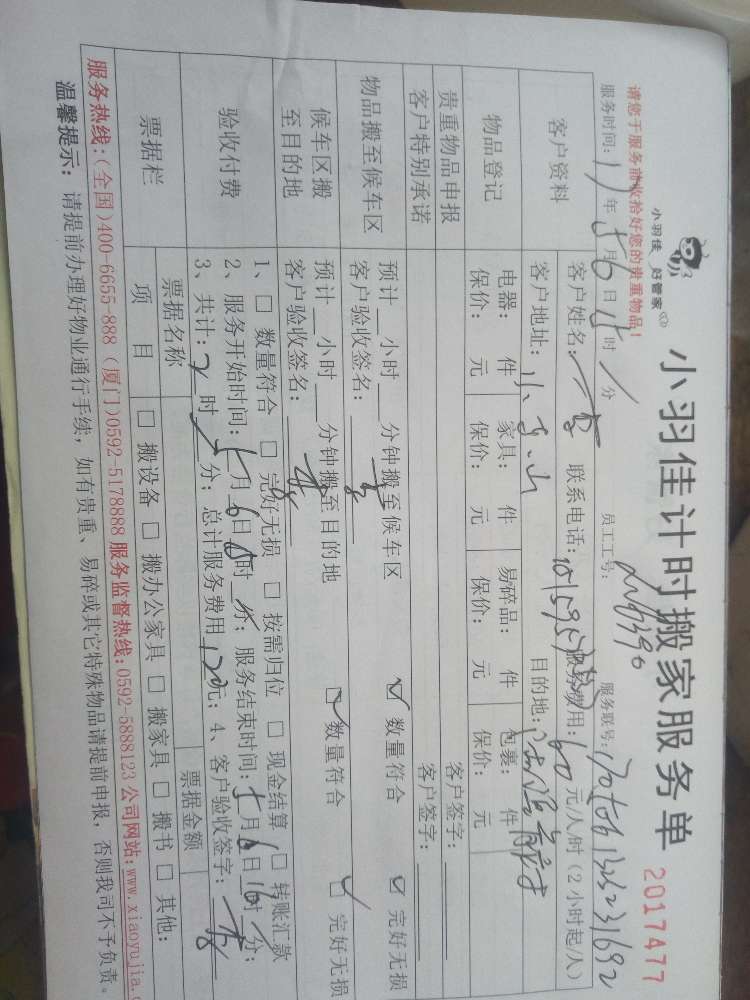 小羽佳 好管家
小羽佳计时搬家服务单
2017477
请您于服务前收拾好您的贵重物品!
服务时间: 17 年 5 月 6 日 时 分 员工工号: 服务联号:
客户资料
客户姓名: 联系电话: 服务费用: 60 元/人/时(2小时起/人)
客户地址: 目的地:
物品登记
电器: 件 家具: 件 易碎品: 件 包裹: 件
保价: 元 保价: 元 保价: 元 保价: 元
贵重物品申报 客户签字:
客户特别承诺 客户签字:
物品搬至候车区
预计 小时 分钟搬至候车区 ☑ 数量符合 ☑ 完好无损
客户验收签名:
候车区搬至目的地
预计 小时 分钟搬至目的地 ☑ 数量符合 ☑ 完好无损
客户验收签名:
验收付费
1、□ 数量符合 □ 完好无损 □ 按需归位 □ 现金结算 □ 转账汇款
2、服务开始时间: 5 月 6 日 时 分; 服务结束时间: 5 月 6 日 16 时 分;
3、共计: 时 分; 总计服务费用 120 元; 4、客户验收签字:
票据栏
票据名称 票据金额
项 目 □ 搬设备 □ 搬办公家具 □ 搬家具 □ 搬书 □ 其他:
服务热线:(全国)400-6655-888 (厦门)0592-5178888 服务监督热线:0592-5888123 公司网站:www.xiaoyujia.c
温馨提示: 请提前办理好物业通行手续, 如有贵重、易碎或其它特殊物品请提前申报, 否则我司不予负责。